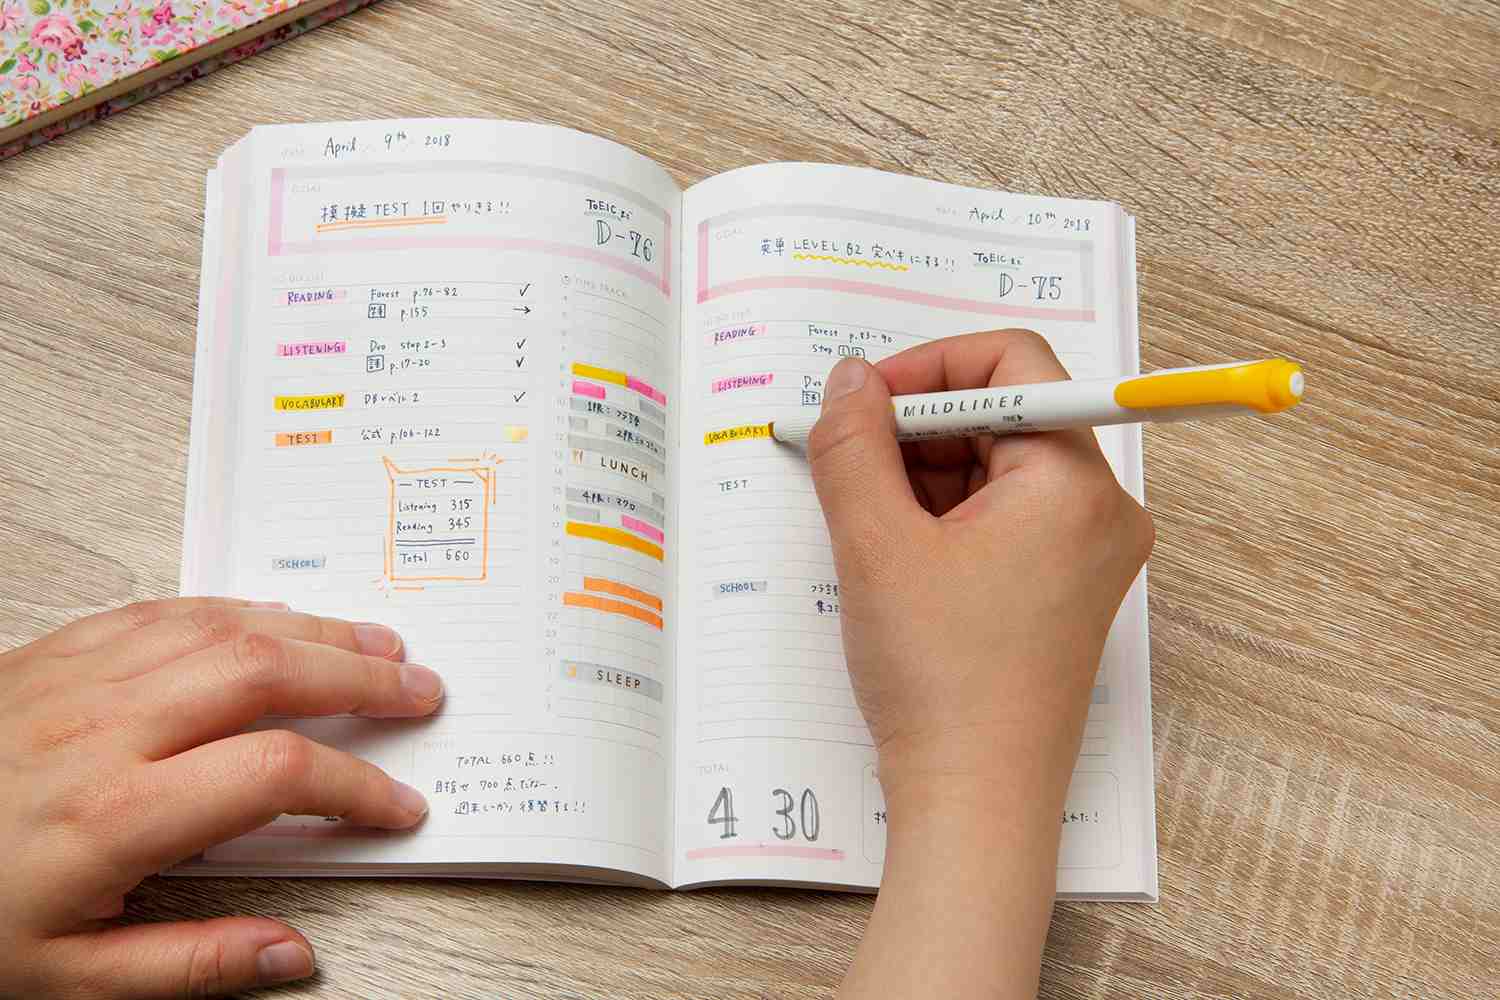 DATE April / 9th / 2018
GOAL
模擬TEST 1回 やりきる!!
TOEICまで
D-76
TO DO LIST
READING Forest p.76-82 ✓
p.155 →
LISTENING Duo step 2-3 ✓
p.17-20 ✓
VOCABULARY DBレベル2 ✓
TEST 公式 p.106-122
TEST
Listening 315
Reading 345
Total 660
SCHOOL
TIME TRACK
4
9
10
11
12
13
14
15
16
17
18
19
20
21
22
23
24
1
2
3
1PR:フラ言
LUNCH
4PR:マクロ
SLEEP
NOTE
TOTAL 660点!!
目指せ 700点だなー.
週末しっかり復習する!!
DATE April / 10th / 2018
GOAL
英単 LEVEL 02 完ペキにする!!
TOEICまで
D-75
TO DO LIST
READING Forest p.83-90
Step 1 2
LISTENING Duo
VOCABULARY
TEST
SCHOOL フラ言
TOTAL
4 30
MILDLINER